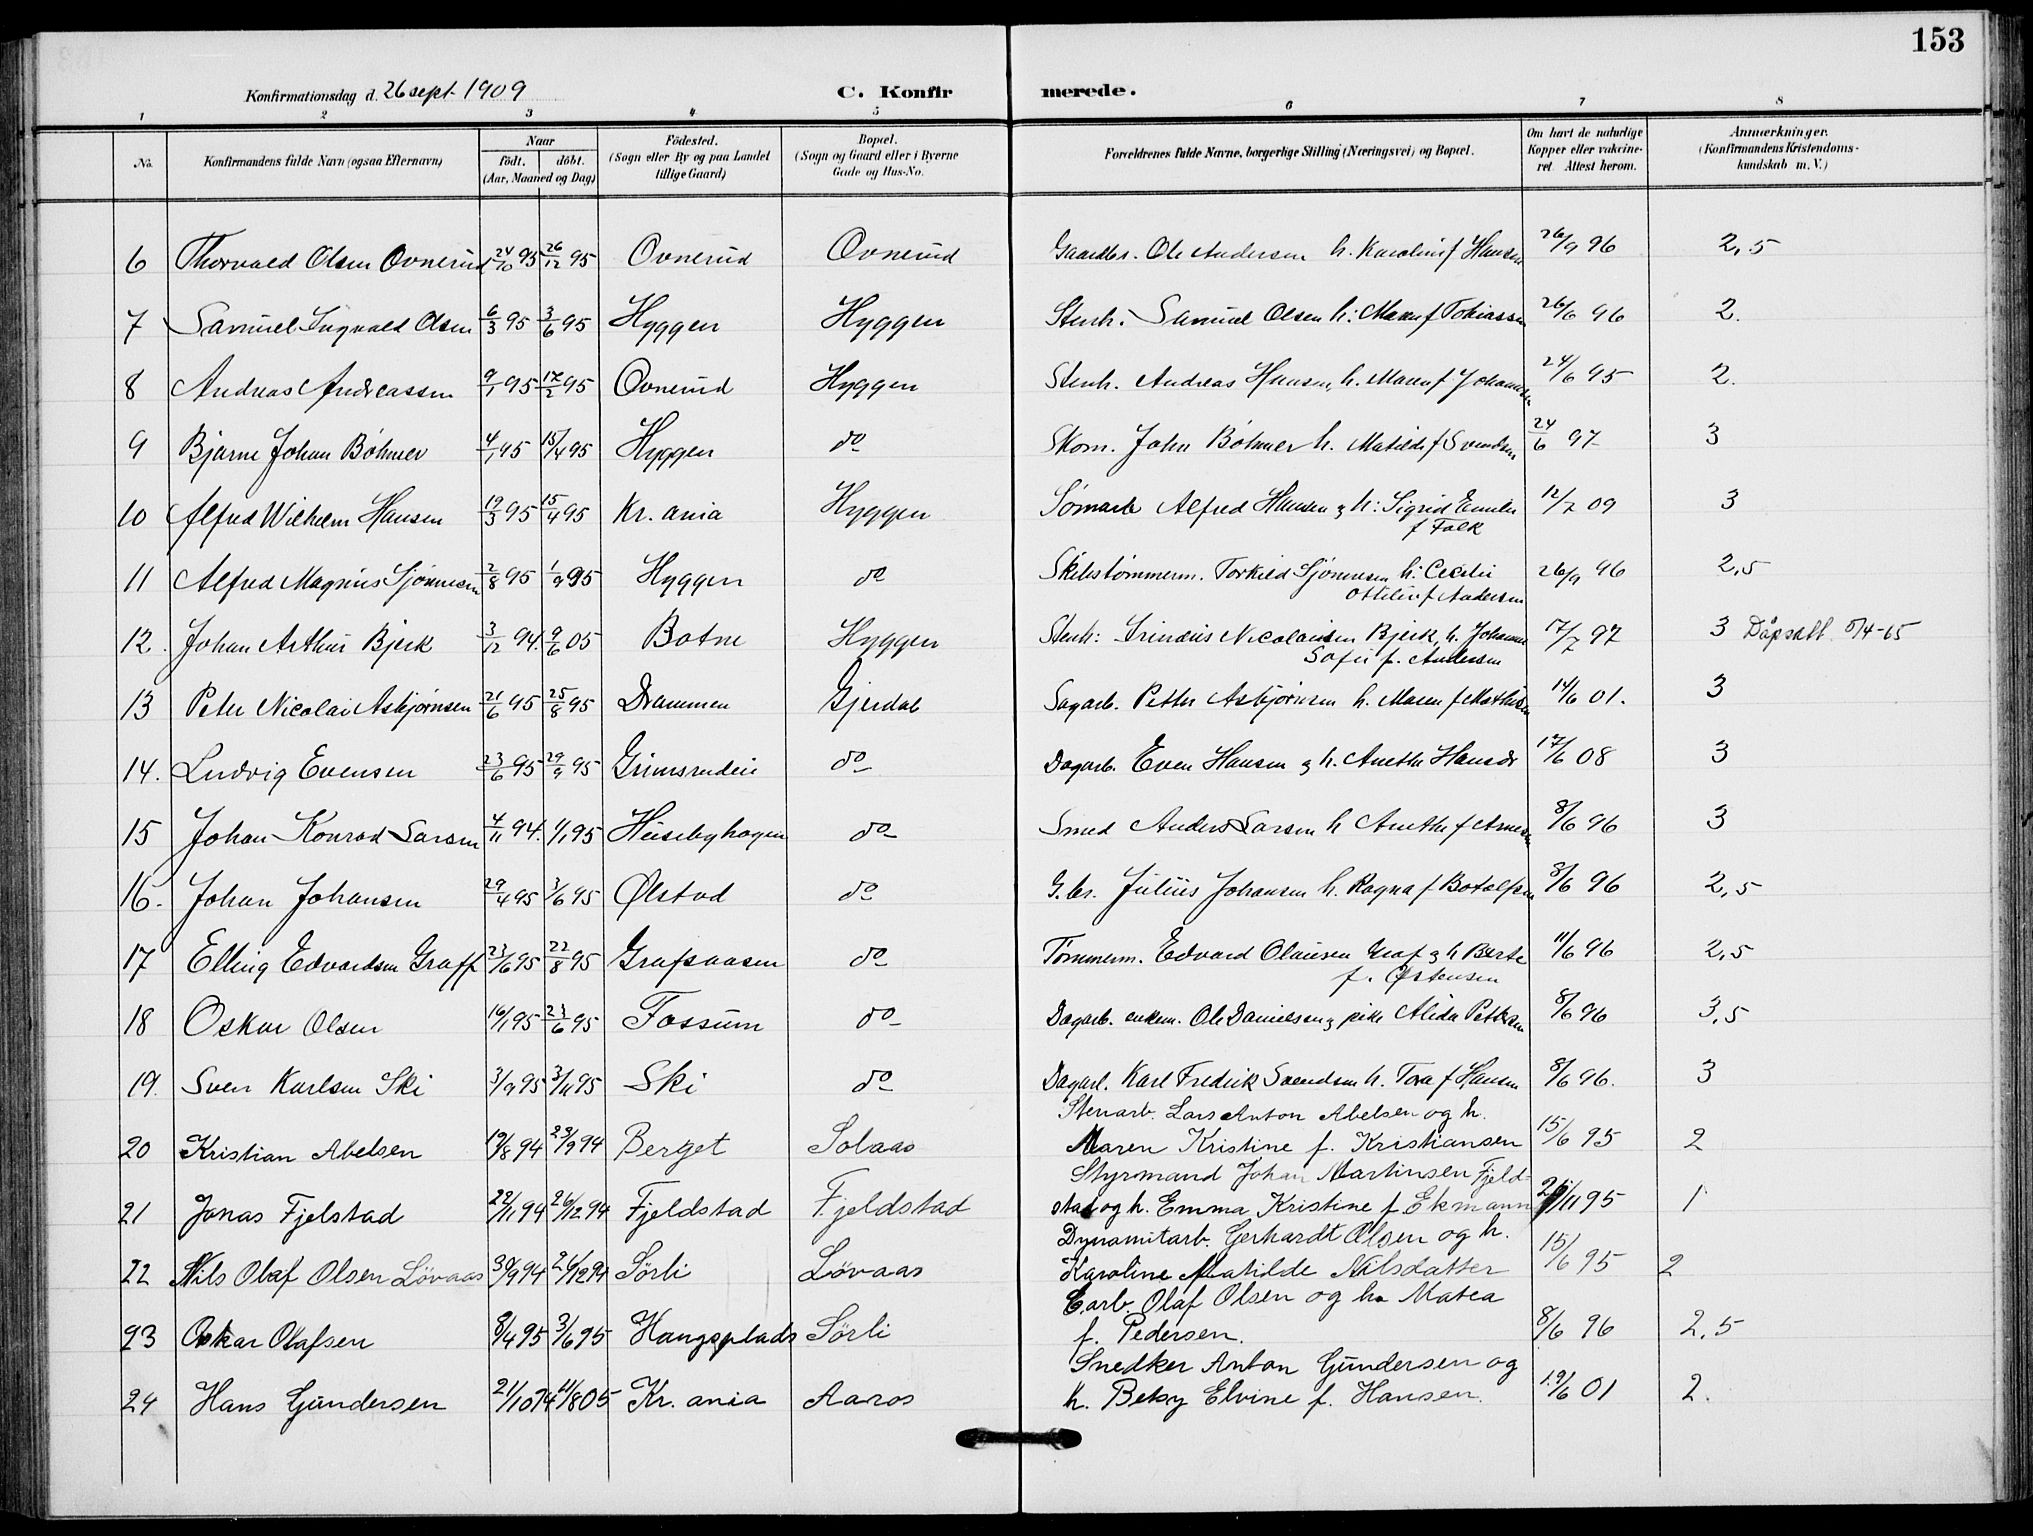 153
Konfirmationsdag d. 26 sept 1909 C. Konfirmerede.
1 2 3 4 5 6 7 8
No. Konfirmandens fulde Navn (ogsaa Efternavn) Naar födt. döbt. (Aar, Maaned og Dag) Födested. (Sogn eller By og paa Landet tillige Gaard) Bopæl. (Sogn og Gaard eller i Byerne Gade og Hus-No. Forældrenes fulde Navne, borgerlige Stilling (Næringsvei) og Bopæl. Om havt de naturlige Kopper eller vakcineret. Attest herom. Anmærkninger. (Konfirmandens Kristendomskundskab m. V.)
6 Thorvald Olsen Ovnerud 24/10 95 26/12 95 Ovnerud Ovnerud Gaardbr. Ole Andersen h. Karolin f Hansen 26/9 96 2,5
7 Samuel Ingvald Olsen 6/3 95 3/6 95 Hyggen Hyggen Stenh: Samuel Olsen h: Maren f Tobiassen 26/6 96 2.
8 Andreas Andreassen 9/1 95 17/2 95 Ovnerud Hyggen Stenh. Andreas Hansen, h. Maren f Johannesen 24/6 95 2.
9 Bjarne Johan Böhmer 4/1 95 15/4 95 Hyggen do Skom. John Böhmer h. Matilde f Svendsen 24/6 97 3
10 Alfred Wilhelm Hansen 19/3 95 15/4 95 Kr. ania Hyggen Sömarb Alfred Hansen & h: Sigrid Emilie
f Falk 12/7 09 3
11 Alfred Magnus Sjönnesen 2/8 95 1/9 95 Hyggen do Skibstömmerm. Torkild Sjönnesen h: Cecilie
Ottilie f Andersen 26/9 96 2,5
12. Johan Arthur Bjerk 3/12 94. 9/6 05 Botne Hyggen Stenh: Nicolaisen Bjerk, h. Johanne
Sofie f. Andersen 17/7 97 3 Dåpsatt. 8/4-65
13 Peter Nicolai Asbjørnsen 21/6 95 25/8 95 Drammen Gjerdal Sagarb. Petter Asbjørnsen h. Maren f Mathisen 14/6 01. 3
14. Ludvig Evensen 23/6 95 29/9 95 Grimsrudeie do Dagarb. Even Hansen & h. Anethe Hansdr 17/6 08 3
15 Johan Konrad Larsen 4/11 94. 1/1 95 Heisebyhagen do Smed Anders Larsen h Anethe f Arnesen 8/6 96 3
16. Johan Johansen 29/4 95 3/6 95 Ølstad do G.br. Julius Johansen h. Ragna f Botolfsen 8/6 96 2,5
17 Elling Edvardsen Graff 23/6 95 22/8 95 Grafsaasen do Tömmerm. Edvard Olausen Graf & h Berte
f. Østensen 11/6 96 2,5
18 Oskar Olsen 16/1 95 23/6 95 Fossum do Dagarb. enkem. Ole Danielsen & pike Alida Pettersen 8/6 96 3,5
19. Sven Karlsen Ski 3/9 95 3/11 95 Ski do Dagarb. Karl Fredrik Svendsen h. Tora f Hansen 8/6 96. 3
Stenarb. Lars Anton Abelsen og h.
20 Kristian Abelsen 19/8 94 23/9 94 Berget Solaas Maren Kristine f. Kristiansen 15/6 95 2
Styrmand Johan Martinsen Fjeld-
21 Jonas Fjelstad 22/11 94 26/12 94 Fjeldstad Fjeldstad stad og h. Emma Kristine f Ekmann /11 95 1
Dynamitarb. Gerhardt Olsen og h.
22 Nils Olaf Olsen Lövaas 30/9 94 26/12 94 Sörli Lövaas Karoline Matilde Nilsdatter 15/6 95 2
E.arb. Olaf Olsen og h Matea
23 Oskar Olafsen 8/4 95 3/6 95 Haugsplads Sörli f. Pedersen. 8/6 96 2,5
Snedker Anton Gundersen og
24 Hans Gundersen 21/10 74 11/8 05 Kr. ania Aaros h. Betsy Elvine f. Hansen. 19/6 01 2.